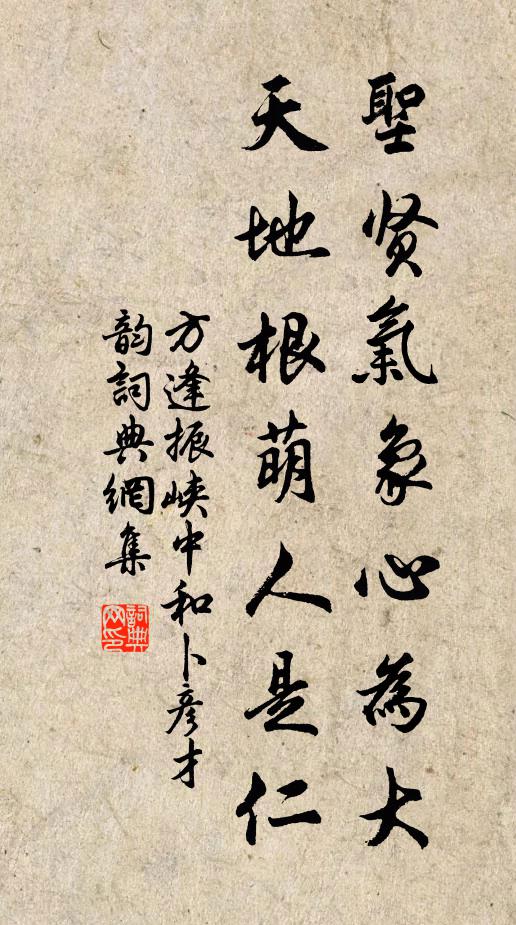 聖贤氣象心為大
天地根萌人是仁
方逢振峡中和卜彦才
韵詞典網集
詞典网印